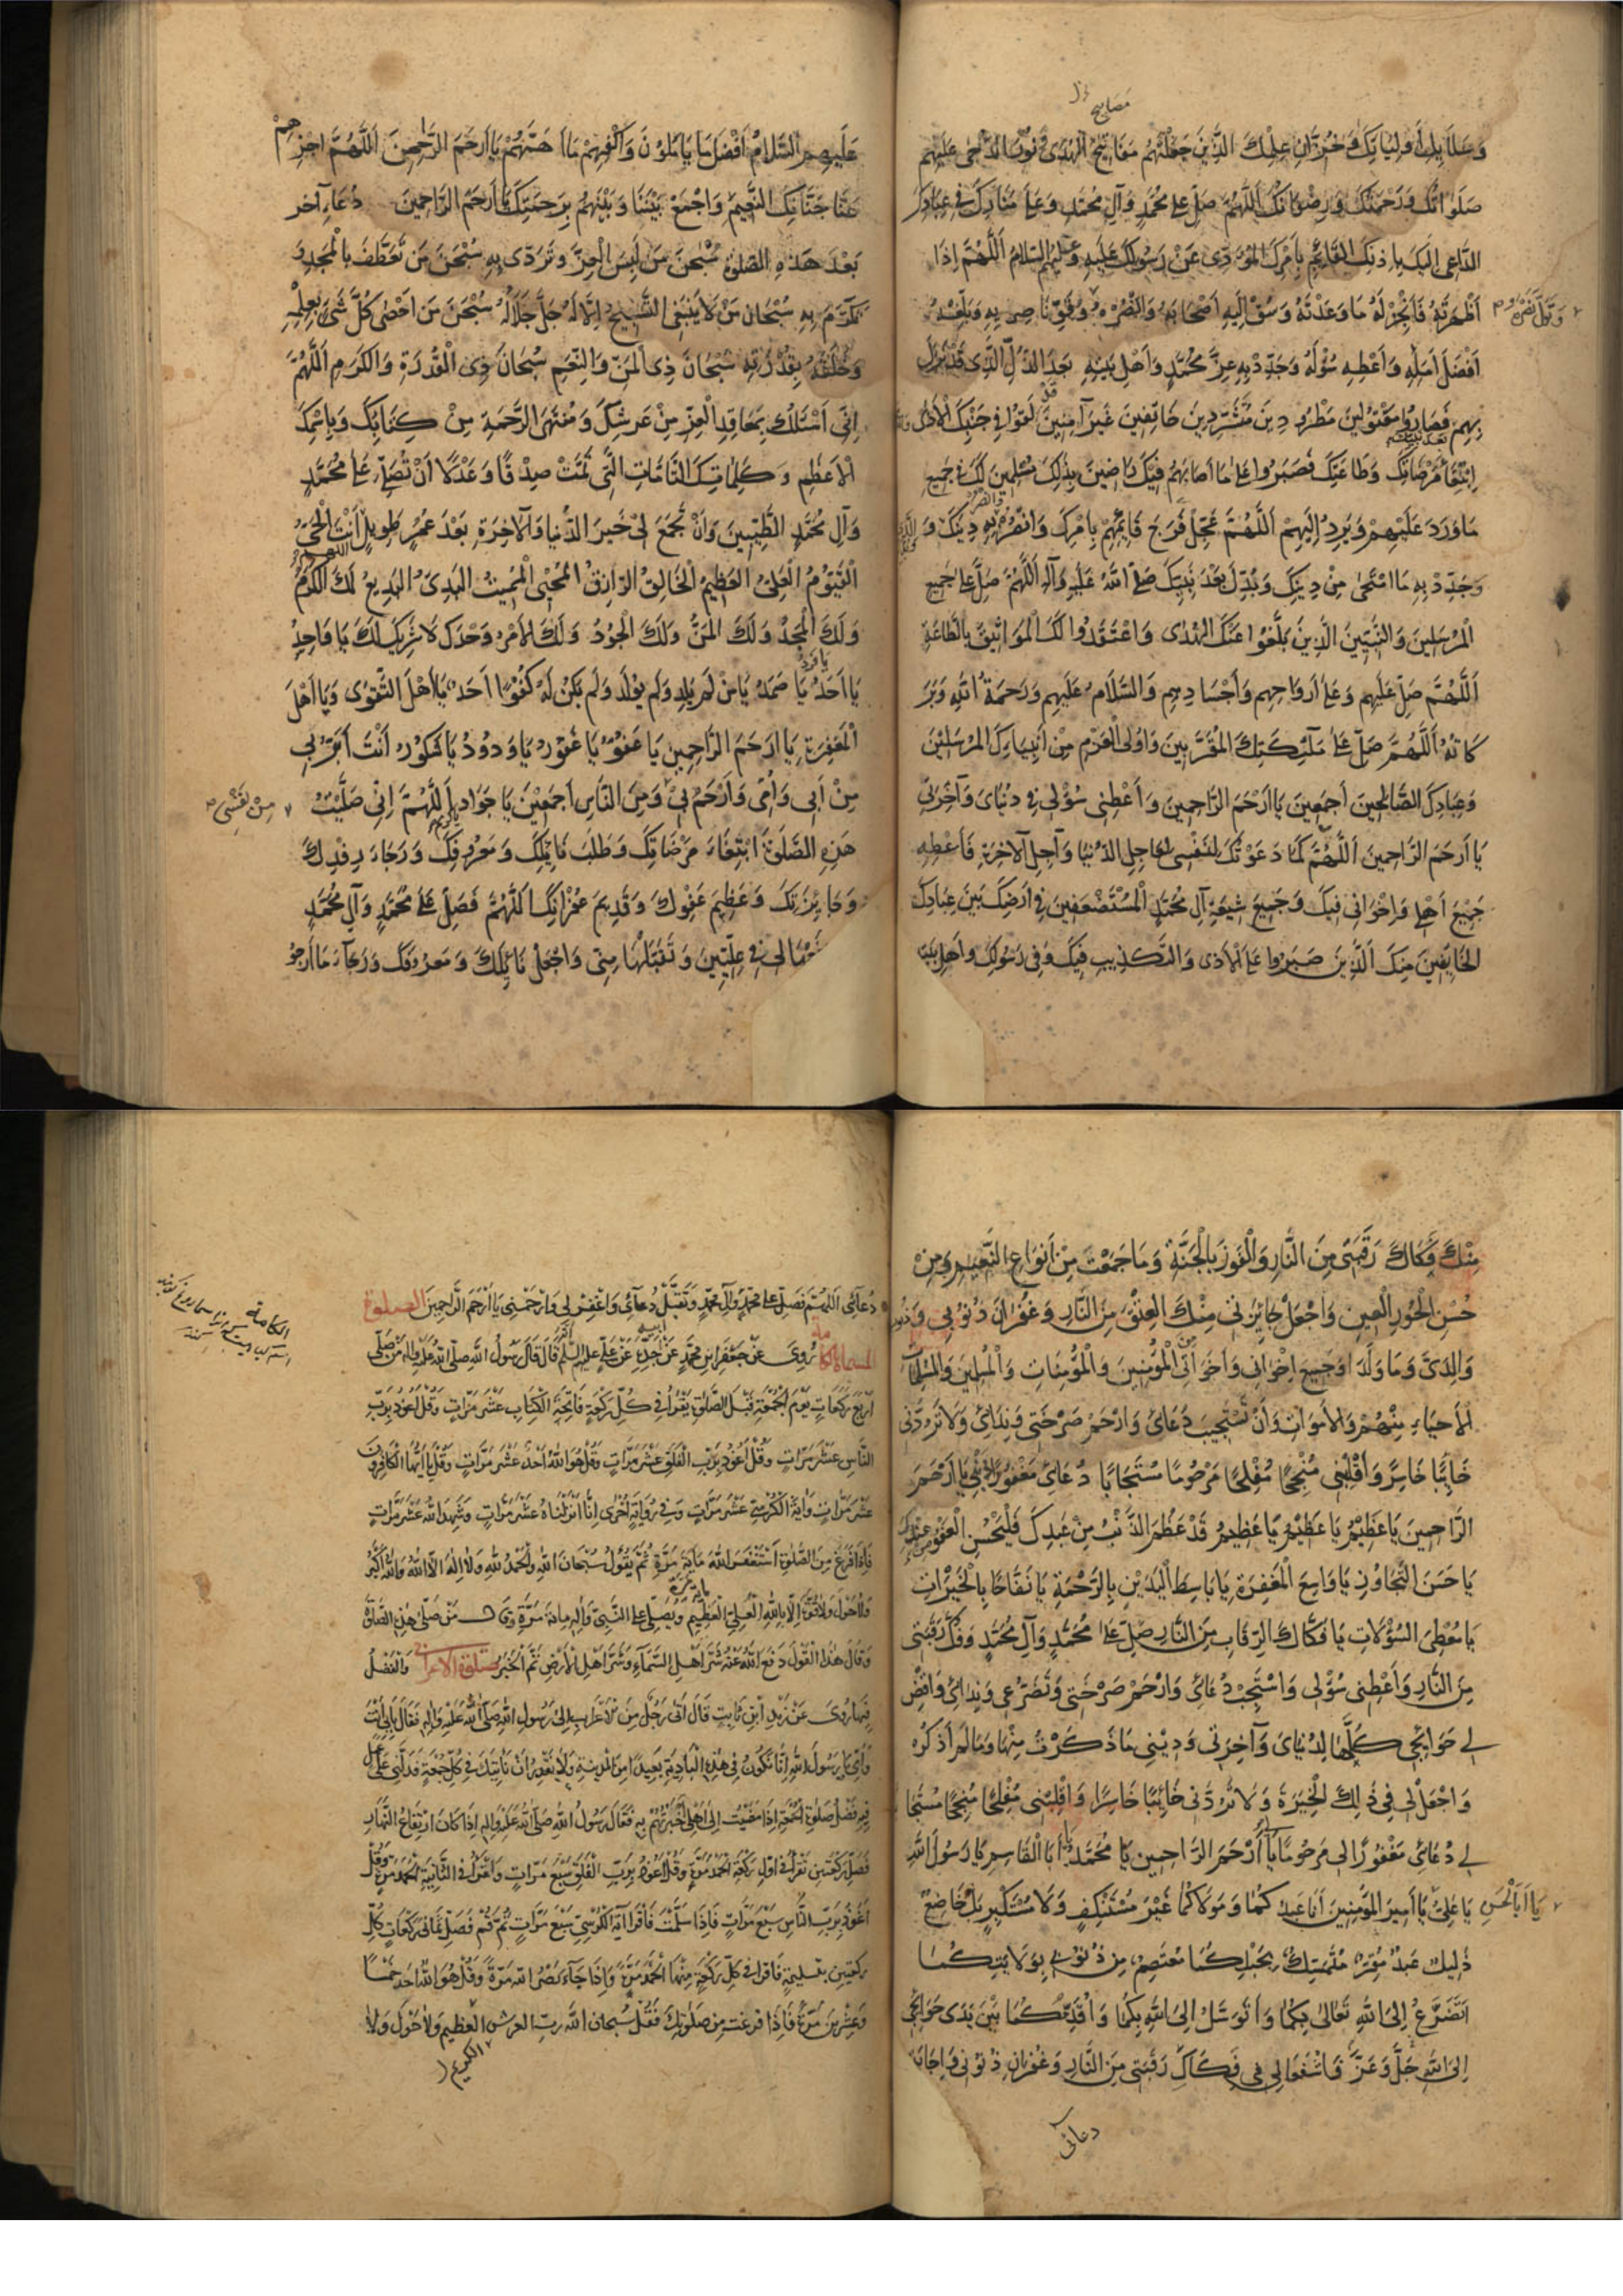 مصابيح
وَسَلَالَةِ أَوْلِيَائِكَ وَخُزَّانِ عِلْمِكَ الَّذِينَ جَعَلْتَهُمْ مَفَاتِيحَ الْهُدَى وَنُورَ الدُّجَى عَلَيْهِمْ
صَلَوَاتُكَ وَرَحْمَتُكَ وَرِضْوَانُكَ اَللّهُمَّ صَلِّ عَلَى مُحَمَّدٍ وَآلِ مُحَمَّدٍ وَعَلَى مَنَارِكَ فِي عِبَادِكَ
الدَّاعِي اِلَيْكَ بِإِذْنِكَ الْقَائِمِ بِأَمْرِكَ الْمُؤَدِّي عَنْ رَسُولِكَ عَلَيْهِ وَعَلَيْهِمُ السَّلَامُ اَللّهُمَّ إِذَا
أَظْهَرْتَهُ فَأَنْجِزْ لَهُ مَا وَعَدْتَهُ وَسُقْ اِلَيْهِ أَصْحَابَهُ وَانْصُرْهُ وَقَوِّ نَاصِرِيهِ وَبَلِّغْهُ
أَفْضَلَ أَمَلِهِ وَأَعْطِهِ سُؤْلَهُ وَجَدِّدْ بِهِ عِزَّ مُحَمَّدٍ وَأَهْلِ بَيْتِهِ بَعْدَ الذُّلِّ الَّذِي قَدْ نَزَلَ
بِهِمْ فَصَارُوا مَقْتُولِينَ مَطْرُودِينَ مُشَرَّدِينَ خَائِفِينَ غَيْرَ آمِنِينَ لَقُوا فِي جَنْبِكَ الْأَذَى
اِبْتِغَاءَ مَرْضَاتِكَ وَطَاعَتِكَ فَصَبَرُوا عَلَى مَا أَصَابَهُمْ فِيكَ رَاضِينَ بِذَلِكَ مُسَلِّمِينَ لَكَ فِي جَمِيعِ
مَا وَرَدَ عَلَيْهِمْ وَيَرِدُ إِلَيْهِمْ اَللّهُمَّ عَجِّلْ فَرَجَ قَائِمِهِمْ بِأَمْرِكَ وَانْصُرْهُ وَانْصُرْ بِهِ دِينَكَ
وَجَدِّدْ بِهِ مَا امْتَحَى مِنْ دِينِكَ وَبُدِّلَ بَعْدَ نَبِيِّكَ صَلَّى اللهُ عَلَيْهِ وَآلِهِ اَللّهُمَّ صَلِّ عَلَى جَمِيعِ
الْمُرْسَلِينَ وَالنَّبِيِّينَ الَّذِينَ بَلَّغُوا عَنْكَ الْهُدَى وَاعْتَقَدُوا لَكَ الْمَوَاثِيقَ بِالطَّاعَةِ
اَللّهُمَّ صَلِّ عَلَيْهِمْ وَعَلَى أَرْوَاحِهِمْ وَأَجْسَادِهِمْ وَالسَّلَامُ عَلَيْهِمْ وَرَحْمَةُ اللهِ وَبَرَ
كَاتُهُ اَللّهُمَّ صَلِّ عَلَى مَلَئِكَتِكَ الْمُقَرَّبِينَ وَأُولِي الْعَزْمِ مِنْ أَنْبِيَائِكَ الْمُرْسَلِينَ
وَعِبَادِكَ الصَّالِحِينَ أَجْمَعِينَ يَا أَرْحَمَ الرَّاحِمِينَ وَأَعْطِنِي سُؤْلِي فِي دُنْيَايَ وَآخِرَتِي
يَا أَرْحَمَ الرَّاحِمِينَ اَللّهُمَّ كُلَّمَا دَعَوْتُكَ لِنَفْسِي لِعَاجِلِ الدُّنْيَا وَآجِلِ الْآخِرَةِ فَأَعْطِهِ
جَمِيعَ أَهْلِي وَإِخْوَانِي فِيكَ وَجَمِيعَ شِيعَةِ آلِ مُحَمَّدٍ الْمُسْتَضْعَفِينَ فِي أَرْضِكَ بَيْنَ عِبَادِكَ
الْخَائِفِينَ مِنْكَ الَّذِينَ صَبَرُوا عَلَى الْأَذَى وَالتَّكْذِيبِ فِيكَ وَفِي رَسُولِكَ وَأَهْلِ بَيْتِهِ
عَلَيْهِمُ السَّلَامُ أَفْضَلَ مَا يَأْمُلُونَ وَاكْفِهِمْ مَا أَهَمَّهُمْ يَا أَرْحَمَ الرَّاحِمِينَ اَللّهُمَّ اجْزِهِمْ
عَنَّا جَنَّاتِكَ النَّعِيمَ وَاجْمَعْ بَيْنَنَا وَبَيْنَهُمْ بِرَحْمَتِكَ يَا أَرْحَمَ الرَّاحِمِينَ دُعَاءٌ آخَرُ
بَعْدَ هَذِهِ الصَّلوةِ سُبْحنَ مَنْ لَبِسَ الْعِزَّ وَتَرَدَّى بِهِ سُبْحنَ مَنْ تَعَطَّفَ بِالْمَجْدِ وَ
تَكَرَّمَ بِهِ سُبْحَانَ مَنْ لَا يَنْبَغِي التَّسْبِيحُ اِلَّا لَهُ جَلَّ جَلَالُهُ سُبْحنَ مَنْ أَحْصَى كُلَّ شَيْءٍ بِعِلْمِهِ
وَخَلَقَهُ بِقُدْرَتِهِ سُبْحَانَ ذِي الْمَنِّ وَالنِّعَمِ سُبْحَانَ ذِي الْقُدْرَةِ وَالْكَرَمِ اَللّهُمَّ
اِنِّي أَسْئَلُكَ بِمَعَاقِدِ الْعِزِّ مِنْ عَرْشِكَ وَمُنْتَهَى الرَّحْمَةِ مِنْ كِتَابِكَ وَبِاسْمِكَ
الْأَعْظَمِ وَكَلِمَاتِكَ التَّامَّاتِ الَّتِي تَمَّتْ صِدْقًا وَعَدْلًا أَنْ تُصَلِّيَ عَلَى مُحَمَّدٍ
وَآلِ مُحَمَّدٍ الطَّيِّبِينَ وَأَنْ تَجْمَعَ لِي خَيْرَ الدُّنْيَا وَالْآخِرَةِ بَعْدَ عُمُرٍ طَوِيلٍ أَنْتَ الْحَيُّ
الْقَيُّومُ الْعَلِيُّ الْعَظِيمُ الْخَالِقُ الرَّازِقُ الْمُحْيِي الْمُمِيتُ الْبَدِيُّ الْبَدِيعُ لَكَ الْكَرَمُ
وَلَكَ الْمَجْدُ وَلَكَ الْمَنُّ وَلَكَ الْجُودُ وَلَكَ الْأَمْرُ وَحْدَكَ لَا شَرِيكَ لَكَ يَا وَاحِدُ
يَا أَحَدُ يَا صَمَدُ يَا مَنْ لَمْ يَلِدْ وَلَمْ يُولَدْ وَلَمْ يَكُنْ لَهُ كُفُوًا أَحَدٌ يَا أَهْلَ التَّقْوَى وَيَا أَهْلَ
الْمَغْفِرَةِ يَا أَرْحَمَ الرَّاحِمِينَ يَا عَفُوُّ يَا غَفُورُ يَا وَدُودُ يَا شَكُورُ أَنْتَ أَبَرُّ بِي
مِنْ أَبِي وَأُمِّي وَأَرْحَمُ بِي وَمِنَ النَّاسِ أَجْمَعِينَ يَا جَوَادُ اَللّهُمَّ اِنِّي صَلَّيْتُ
مِنْ نَفْسِي
هَذِهِ الصَّلَوةَ ابْتِغَاءَ مَرْضَاتِكَ وَطَلَبَ نَائِلِكَ وَمَعْرُوفِكَ وَرَجَاءَ رِفْدِكَ
وَجَائِزَتِكَ وَعَظِيمِ عَفْوِكَ وَقَدِيمِ غُفْرَانِكَ اَللّهُمَّ فَصَلِّ عَلَى مُحَمَّدٍ وَآلِ مُحَمَّدٍ
لِي فِي عِلِّيِّينَ وَتَقَبَّلْهَا مِنِّي وَاجْعَلْ نَائِلَكَ وَمَعْرُوفَكَ وَرَجَاءَ مَا أَرْجُو
مِنْكَ فَكَاكَ رَقَبَتِي مِنَ النَّارِ وَالْفَوْزَ بِالْجَنَّةِ وَمَا جَمَعْتَ مِنْ أَنْوَاعِ النَّعِيمِ وَمِنْ
حُسْنِ الْحُورِ الْعِينِ وَاجْعَلْ جَائِزَتِي مِنْكَ الْعِتْقَ مِنَ النَّارِ وَغُفْرَانَ ذُنُوبِي وَذُنُوبِ
وَالِدَيَّ وَمَا وَلَدَا وَجَمِيعِ إِخْوَانِي وَأَخَوَاتِي الْمُؤْمِنِينَ وَالْمُؤْمِنَاتِ وَالْمُسْلِمِينَ وَالْمُسْلِمَاتِ
الْأَحْيَاءِ مِنْهُمْ وَالْأَمْوَاتِ وَأَنْ تَسْتَجِيبَ دُعَائِي وَارْحَمْ صَرْخَتِي وَنِدَائِي وَلَا تَرُدَّنِي
خَائِبًا خَاسِرًا وَأَقْلِبْنِي مُنْجِحًا مُفْلِحًا مَرْحُومًا مُسْتَجَابًا دُعَائِي مَغْفُورًا لِي يَا أَرْحَمَ
الرَّاحِمِينَ يَا عَظِيمُ يَا عَظِيمُ يَا عَظِيمُ قَدْ عَظُمَ الذَّنْبُ مِنْ عَبْدِكَ فَلْيَحْسُنِ الْعَفْوُ مِنْ عِنْدِكَ
يَا حَسَنَ التَّجَاوُزِ يَا وَاسِعَ الْمَغْفِرَةِ يَا بَاسِطَ الْيَدَيْنِ بِالرَّحْمَةِ يَا نَفَّاحًا بِالْخَيْرَاتِ
يَا مُعْطِيَ السُّؤْلَاتِ يَا فَكَّاكَ الرِّقَابِ مِنَ النَّارِ صَلِّ عَلَى مُحَمَّدٍ وَآلِ مُحَمَّدٍ وَفُكَّ رَقَبَتِي
مِنَ النَّارِ وَأَعْطِنِي سُؤْلِي وَاسْتَجِبْ دُعَائِي وَارْحَمْ صَرْخَتِي وَتَضَرُّعِي وَنِدَائِي وَاقْضِ
لِي حَوَائِجِي كُلَّهَا لِدُنْيَايَ وَآخِرَتِي وَدِينِي مَا ذَكَرْتُ مِنْهَا وَمَا لَمْ أَذْكُرْهُ
وَاجْعَلْ لِي فِي ذَلِكَ الْخِيَرَةَ وَلَا تَرُدَّنِي خَائِبًا خَاسِرًا وَاقْلِبْنِي مُفْلِحًا مُنْجِحًا مُسْتَجَابًا
لِي دُعَائِي مَغْفُورًا لِي مَرْحُومًا يَا أَرْحَمَ الرَّاحِمِينَ يَا مُحَمَّدُ يَا أَبَا الْقَاسِمِ يَا رَسُولَ اللهِ
يَا أَبَا الْحَسَنِ يَا عَلِيُّ يَا أَمِيرَ الْمُؤْمِنِينَ أَنَا عَبْدُكُمَا وَمَوْلَاكُمَا غَيْرُ مُسْتَنْكِفٍ وَلَا مُسْتَكْبِرٍ بَلْ خَاضِعٌ
ذَلِيلٌ عَبْدٌ مُقِرٌّ مُتَمَسِّكٌ بِحَبْلِكُمَا مُعْتَصِمٌ مِنْ ذُنُوبِي بِوَلَايَتِكُمَا
اَتَضَرَّعُ اِلَى اللهِ تَعَالَى بِكُمَا وَأَتَوَسَّلُ اِلَى اللهِ بِكُمَا وَأُقَدِّمُكُمَا بَيْنَ يَدَيْ حَوَائِجِي
اِلَى اللهِ جَلَّ وَعَزَّ فَاشْفَعَا لِي فِي فَكَاكِ رَقَبَتِي مِنَ النَّارِ وَغُفْرَانِ ذُنُوبِي وَإِجَابَةِ
دعائي
دُعَائِي اَللّهُمَّ فَصَلِّ عَلَى مُحَمَّدٍ وَآلِ مُحَمَّدٍ وَتَقَبَّلْ دُعَائِي وَاغْفِرْ لِي وَارْحَمْنِي يَا أَرْحَمَ الرَّاحِمِينَ الصلوة
رُوِيَ عَنْ جَعْفَرِ ابْنِ مُحَمَّدٍ عَنْ أَبِيهِ عَنْ جَدِّهِ عَنْ عَلِيٍّ عَلَيْهِمُ السَّلَمُ قَالَ قَالَ رَسُولُ اللهِ صَلَّى اللهُ عَلَيْهِ وَآلِهِ مَنْ صَلَّى
أَرْبَعَ رَكَعَاتٍ يَوْمَ الْجُمُعَةِ قَبْلَ الصَّلوةِ يَقْرَأُ فِي كُلِّ رَكْعَةٍ فَاتِحَةَ الْكِتَابِ عَشْرَ مَرَّاتٍ وَقُلْ أَعُوذُ بِرَبِّ
النَّاسِ عَشْرَ مَرَّاتٍ وَقُلْ أَعُوذُ بِرَبِّ الْفَلَقِ عَشْرَ مَرَّاتٍ وَقُلْ هُوَ اللهُ أَحَدٌ عَشْرَ مَرَّاتٍ وَقُلْ يَا أَيُّهَا الْكَافِرُونَ
عَشْرَ مَرَّاتٍ وَآيَةَ الْكُرْسِيِّ عَشْرَ مَرَّاتٍ وَفِي رِوَايَةٍ أُخْرَى اِنَّا أَنْزَلْنَاهُ عَشْرَ مَرَّاتٍ وَشَهِدَ اللهُ عَشْرَ مَرَّاتٍ
فَإِذَا فَرَغَ مِنَ الصَّلوةِ اسْتَغْفَرَ اللهَ مِائَةَ مَرَّةٍ ثُمَّ يَقُولُ سُبْحَانَ اللهِ وَالْحَمْدُ لِلّهِ وَلَا اِلَهَ اِلَّا اللهُ وَاللهُ أَكْبَرُ
وَلَا حَوْلَ وَلَا قُوَّةَ اِلَّا بِاللهِ الْعَلِيِّ الْعَظِيمِ مائة مرة وَيُصَلِّي عَلَى النَّبِيِّ وَآلِهِ مِائَةَ مَرَّةٍ وقال مَنْ صَلَّى هَذِهِ الصَّلَاةَ
وَقَالَ هَذَا الْقَوْلَ دَفَعَ اللهُ عَنْهُ شَرَّ أَهْلِ السَّمَاءِ وَشَرَّ أَهْلِ الْأَرْضِ تَمَّ الْخَبَرُ صلوة الاعرابي
فِيمَا رُوِيَ عَنْ زَيْدِ ابْنِ ثَابِتٍ قَالَ أَتَى رَجُلٌ مِنَ الْأَعْرَابِ اِلَى رَسُولِ اللهِ صَلَّى اللهُ عَلَيْهِ وَآلِهِ فَقَالَ بِأَبِي أَنْتَ
وَأُمِّي يَا رَسُولَ اللهِ اِنَّا نَكُونُ فِي هَذِهِ الْبَادِيَةِ بَعِيدًا مِنَ الْمَدِينَةِ وَلَا نَقْدِرُ أَنْ نَأْتِيَكَ فِي كُلِّ جُمُعَةٍ فَدُلَّنِي عَلَى عَمَلٍ
فِيهِ فَضْلُ صَلوةِ الْجُمُعَةِ اِذَا مَضَيْتُ اِلَى أَهْلِي أَخْبَرْتُهُمْ بِهِ فَقَالَ رَسُولُ اللهِ صَلَّى اللهُ عَلَيْهِ وَآلِهِ اِذَا كَانَ ارْتِفَاعُ النَّهَارِ
فَصَلِّ رَكْعَتَيْنِ تَقْرَأُ فِي أَوَّلِ رَكْعَةٍ الْحَمْدَ مَرَّةً وَقُلْ أَعُوذُ بِرَبِّ الْفَلَقِ سَبْعَ مَرَّاتٍ وَاقْرَأْ فِي الثَّانِيَةِ الْحَمْدَ مَرَّةً وَقُلْ
أَعُوذُ بِرَبِّ النَّاسِ سَبْعَ مَرَّاتٍ فَإِذَا سَلَّمْتَ فَاقْرَأْ آيَةَ الْكُرْسِيِّ سَبْعَ مَرَّاتٍ ثُمَّ قُمْ فَصَلِّ ثَمَانِيَ رَكَعَاتٍ كُلَّ
رَكْعَتَيْنِ بِتَسْلِيمَةٍ فَاقْرَأْ فِي كُلِّ رَكْعَةٍ مِنْهَا الْحَمْدَ مَرَّةً وَإِذَا جَاءَ نَصْرُ اللهِ مَرَّةً وَقُلْ هُوَ اللهُ أَحَدٌ خَمْسًا
وَعِشْرِينَ مَرَّةً فَإِذَا فَرَغْتَ مِنْ صَلَوتِكَ فَقُلْ سُبْحَانَ اللهِ رَبِّ الْعَرْشِ الْعَظِيمِ وَلَا حَوْلَ وَلَا
الكريم